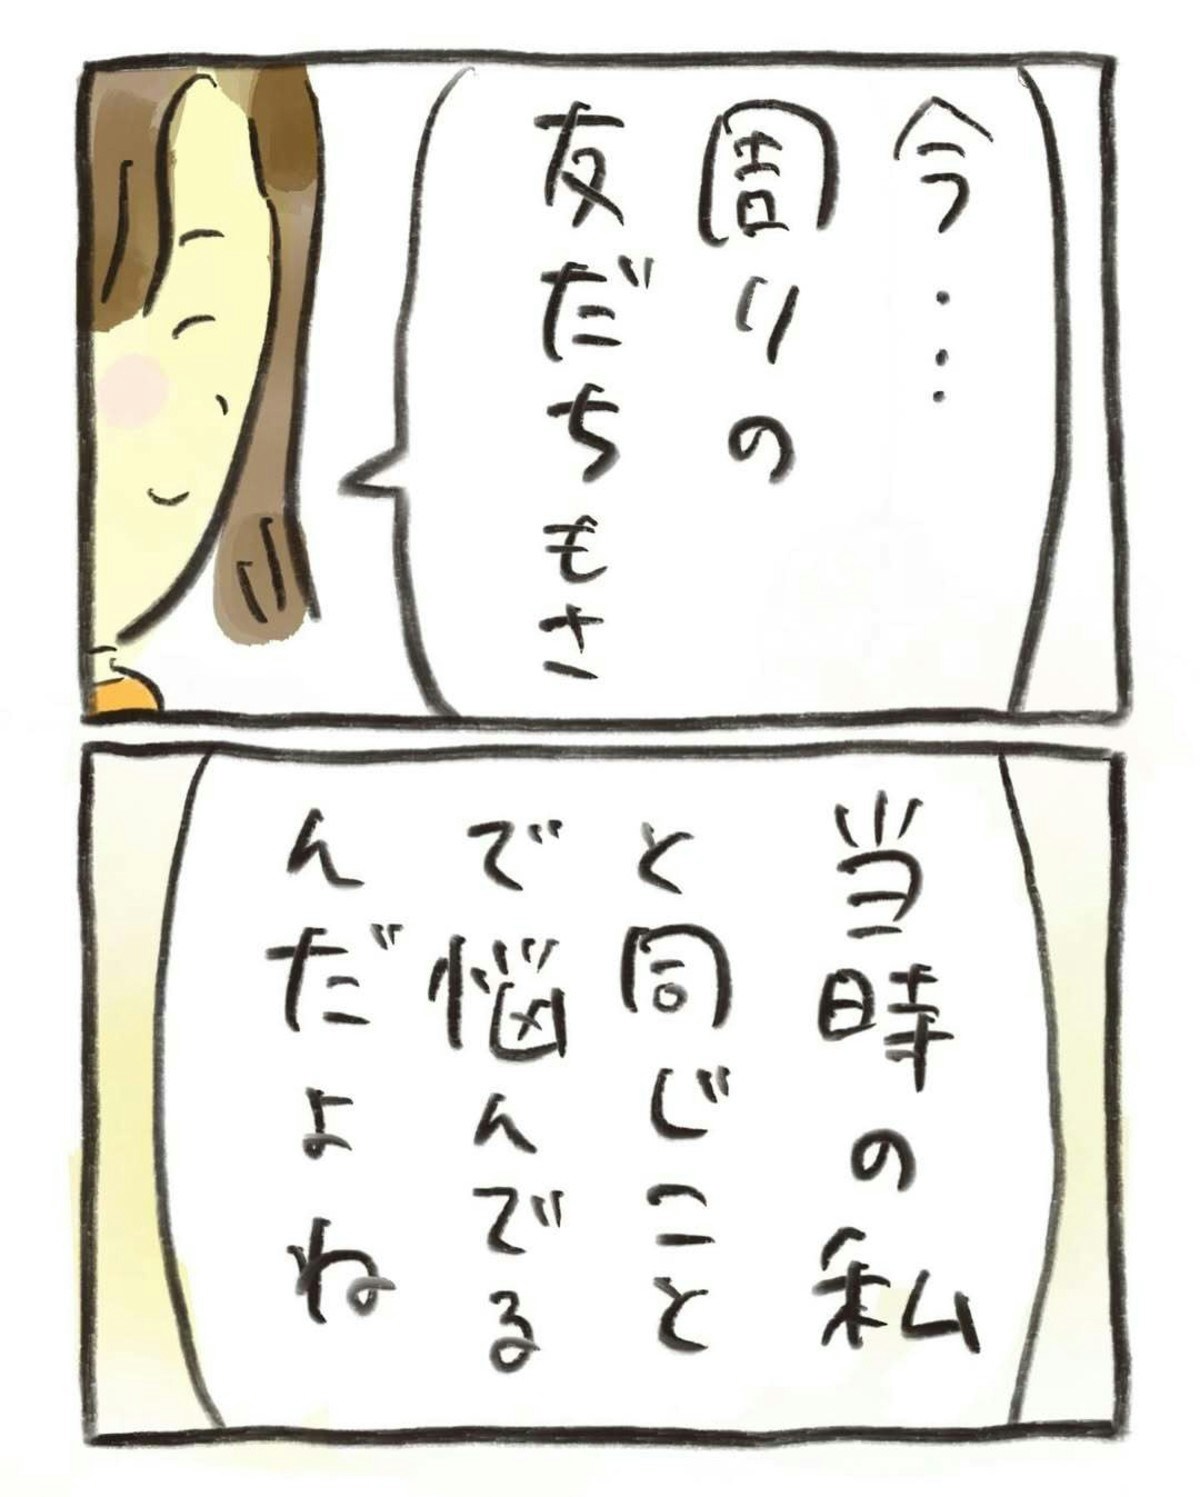 今…
周りの
友だちもさ
当時の私
と同じこと
で悩んでる
んだよね